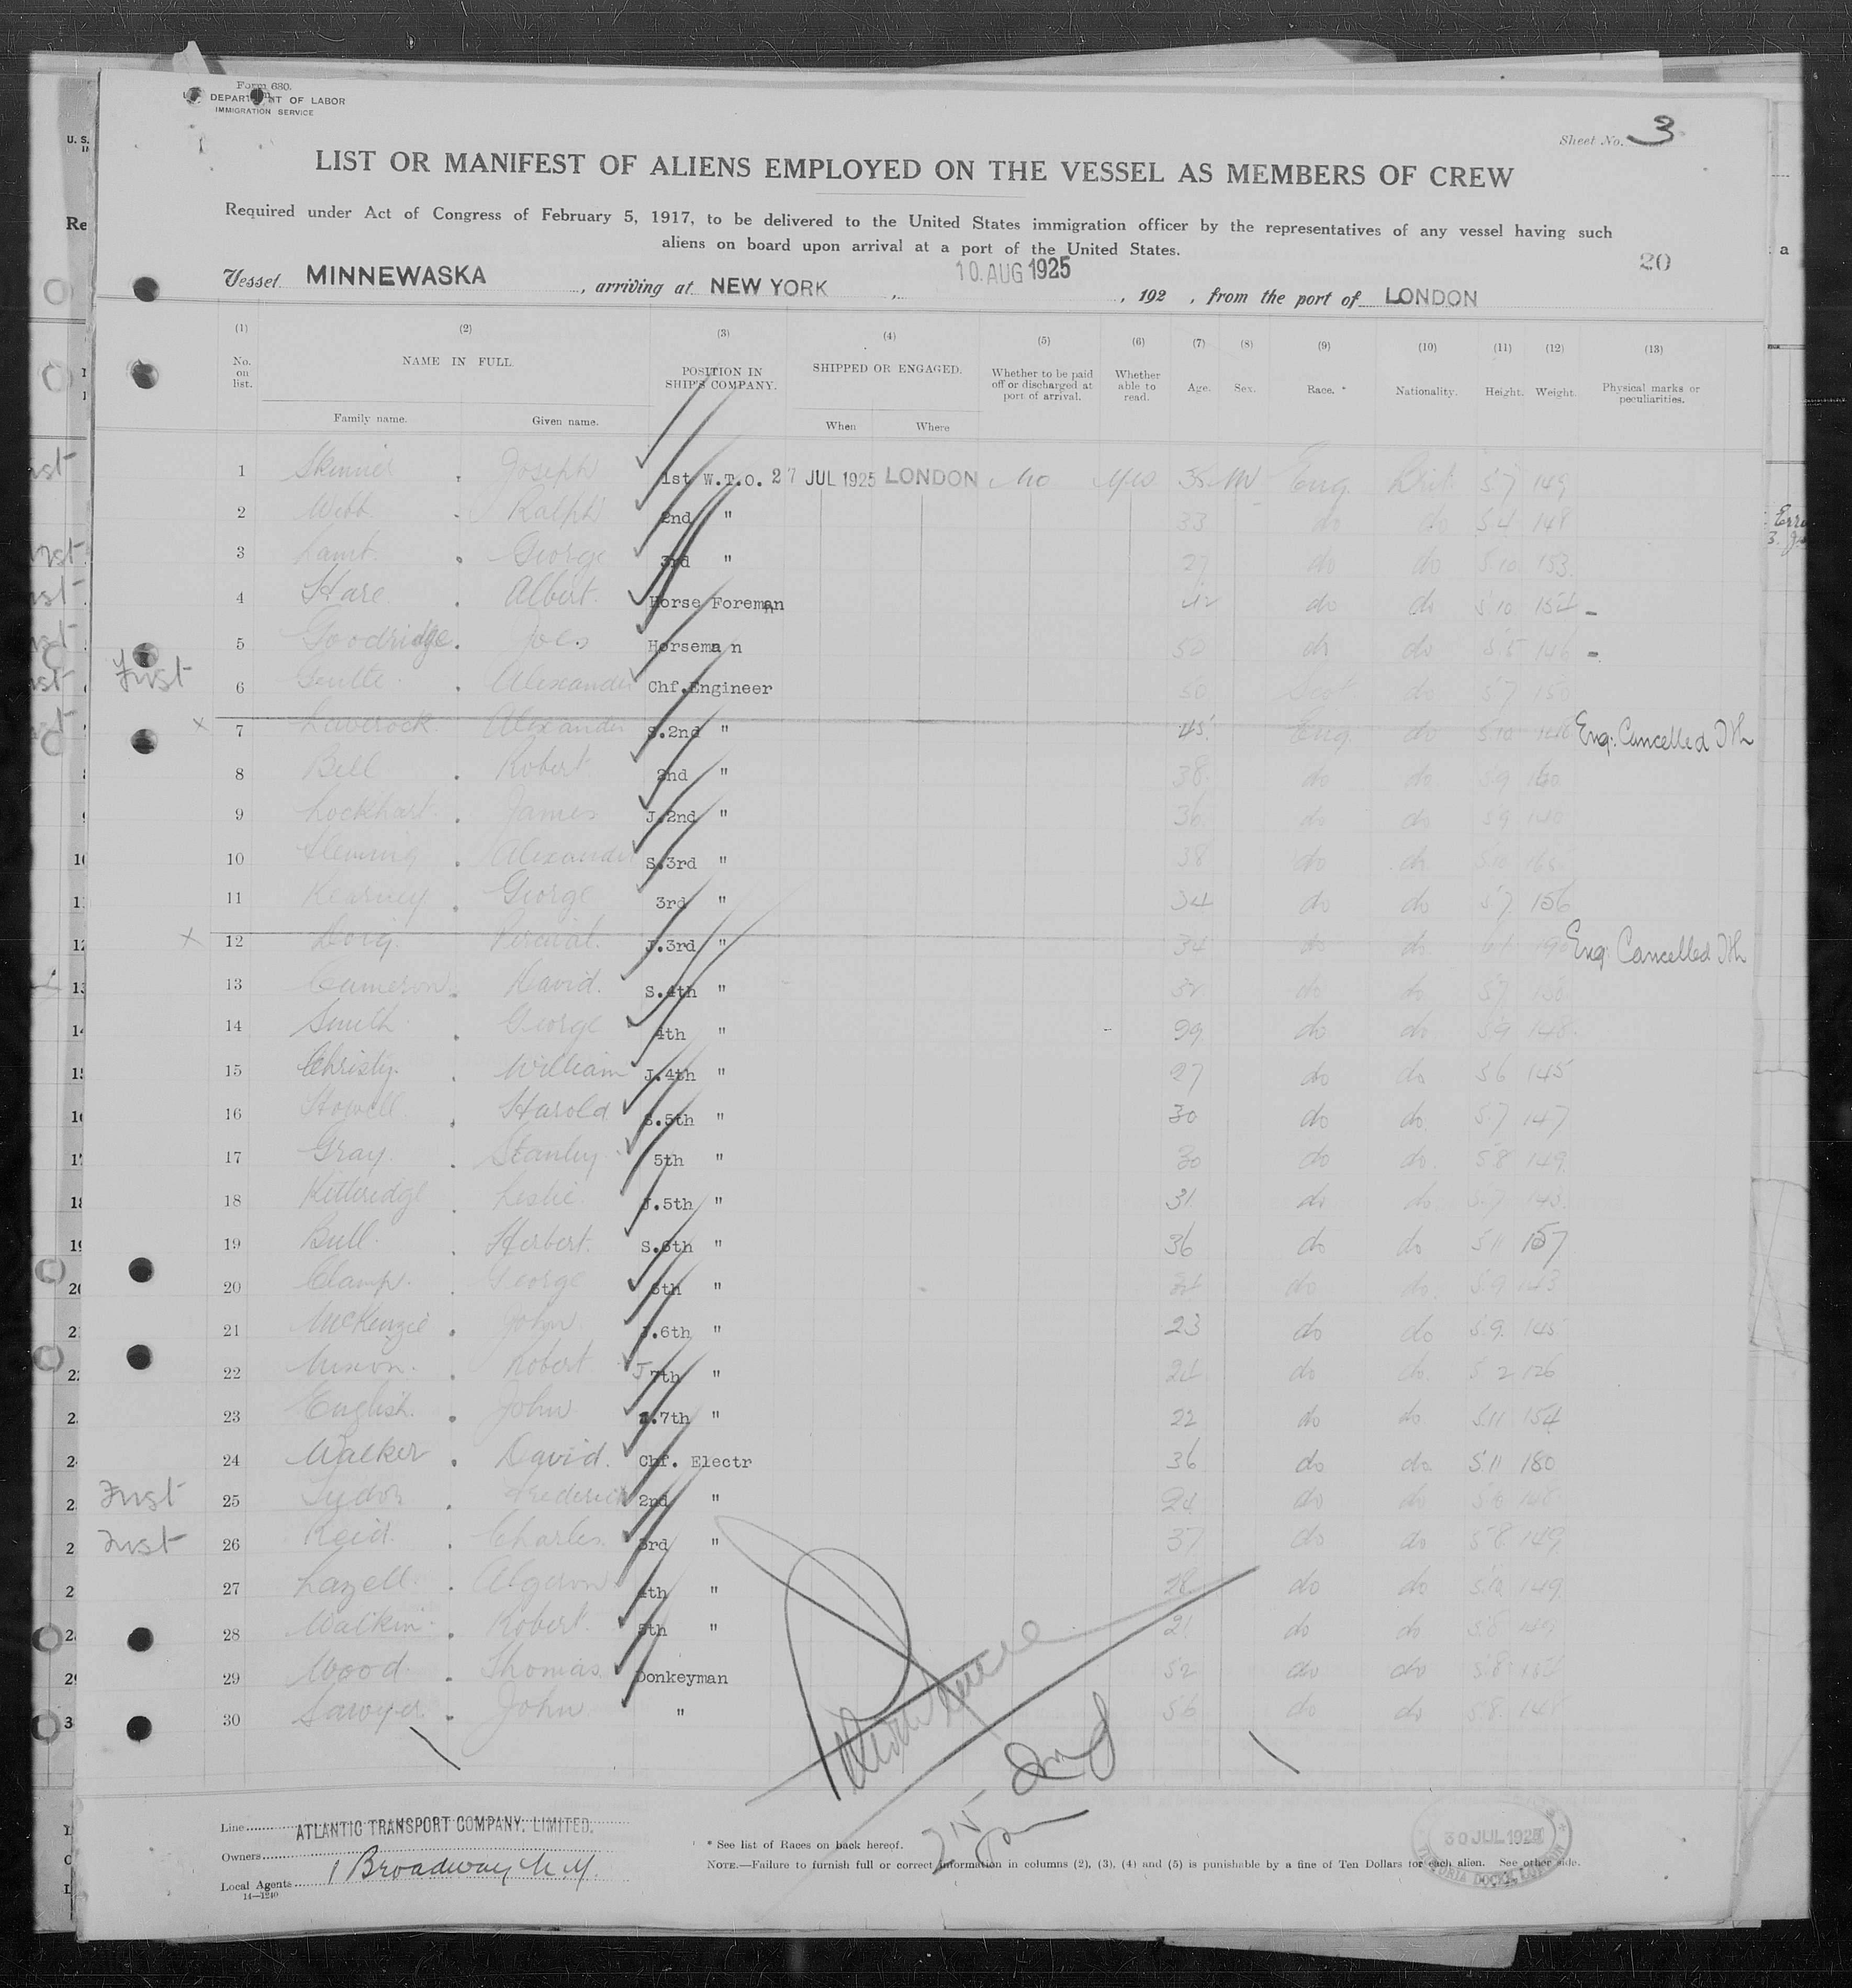 Form 680.
U. S. DEPARTMENT OF LABOR
IMMIGRATION SERVICE
Sheet No. 3
LIST OR MANIFEST OF ALIENS EMPLOYED ON THE VESSEL AS MEMBERS OF CREW
Required under Act of Congress of February 5, 1917, to be delivered to the United States immigration officer by the representatives of any vessel having such
aliens on board upon arrival at a port of the United States.
20
Vessel MINNEWASKA, arriving at NEW YORK, 10 AUG 1925, 192 , from the port of LONDON
(1) (2) (3) (4) (5) (6) (7) (8) (9) (10) (11) (12) (13)
No. on list. NAME IN FULL. POSITION IN SHIP'S COMPANY. SHIPPED OR ENGAGED. Whether to be paid off or discharged at port of arrival. Whether able to read. Age. Sex. Race. * Nationality. Height. Weight. Physical marks or peculiarities.
Family name. Given name. When Where
1 Skinner Joseph 1st W.T.O. 27 JUL 1925 LONDON No Yes 35 M Eng. Brit. 5.7 149
2 Webb Ralph 2nd " 33 do do 5.4 148
3 Lamb George 3rd " 27 do do 5.10 153
4 Hare Albert Horse Foreman 42 do do 5.10 154 -
5 Goodridge Horseman 50 do do 5.5 146 -
First 6 Alexander Chf.Engineer 50 Scot do 5.7 150
x 7 Laverock Alexander S.2nd " 45 Eng do 5.10 Eng. Cancelled
8 Bell Robert 2nd " 38 do do 5.9 160
9 Lockhart James J.2nd " 36 do do 5.9 140
10 Fleming Alexander S.3rd " 38 do do 5.10
11 Kearney George 3rd " 34 do do 5.7 156
x 12 Doig Percival J.3rd " 34 do do 6.1 190 Eng. Cancelled
13 Cameron David S.4th " 32 do do 5.7
14 Smith George 4th " 29 do do 5.9 148
15 Christy William J.4th " 27 do do 5.6 145
16 Howell Harold S.5th " 30 do do 5.7 147
17 Gray Stanley 5th " 30 do do 5.8 149
18 Kitteridge Leslie J.5th " 31 do do 5.7 143
19 Bull Herbert S.6th " 36 do do 5.11 157
20 Clamp George 6th " do do 5.9 143
21 McKenzie John J.6th " 23 do do 5.9 145
22 Nixon Robert J 7th " 24 do do 5.2 126
23 English John .7th " 22 do do 5.11 154
24 Walker David Chf. Electr 36 do do 5.11 180
First 25 Tydor Frederick 2nd " 24 do do 5.10 148
First 26 Reid Charles 3rd " 37 do do 5.8 149
27 Lazell 4th " 28 do do 5.10 149
28 Walkin Robert 5th " 21 do do 149
29 Wood Thomas Donkeyman 52 do do 5.8
30 Sawyer John " 56 do do 5.8 148
Line
ATLANTIC TRANSPORT COMPANY, LIMITED.
Owners
1 Broadway N.Y.
Local Agents
14—1240
* See list of Races on back hereof.
NOTE.—Failure to furnish full or correct information in columns (2), (3), (4) and (5) is punishable by a fine of Ten Dollars for each alien. See other side.
30 JUL 1925
VICTORIA DOCKS, LONDON